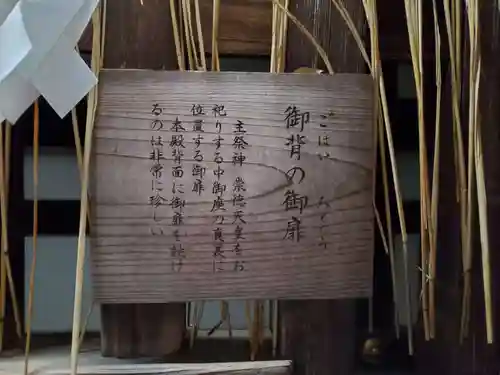 ごはい
御背の御扉
主祭神 崇徳天皇をお
祀りする中御座の真裏に
位置する御扉
本殿背面に御扉を設け
るのは非常に珍しい